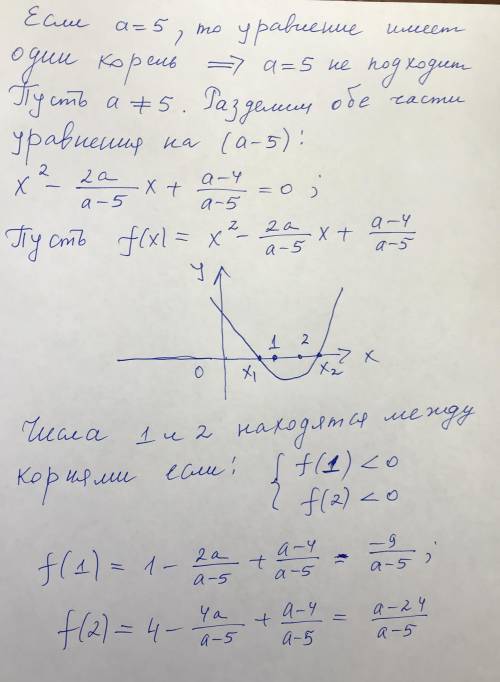 Если a=5, то уравнение имеет
один корень ⟹ a=5 не подходит
Пусть a≠5. Разделим обе части
уравнения на (a-5):
x² - \frac{2a}{a-5} x + \frac{a-4}{a-5} = 0 ;
Пусть f(x) = x² - \frac{2a}{a-5} x + \frac{a-4}{a-5}
y
1 2
0 x₁ x₂ x
Числа 1 и 2 находятся между
корнями если: { f(1) < 0
f(2) < 0
f(1) = 1 - \frac{2a}{a-5} + \frac{a-4}{a-5} = \frac{-9}{a-5} ;
f(2) = 4 - \frac{4a}{a-5} + \frac{a-4}{a-5} = \frac{a-24}{a-5}